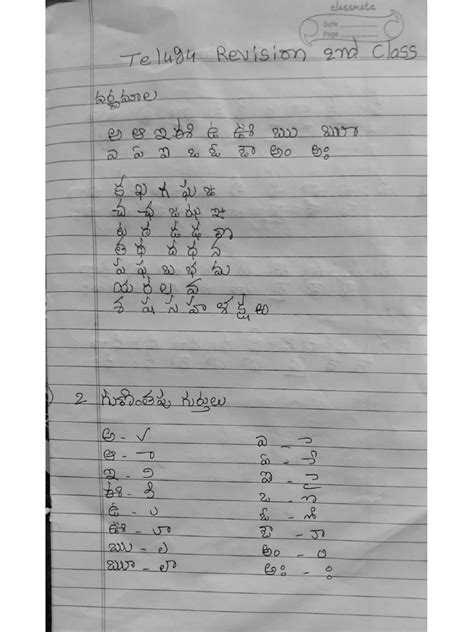 classmate
Date
Page
Telugu Revision 2nd Class
వర్ణమాల
అ ఆ ఇ ఈ ఉ ఊ ఋ ౠ
ఎ ఏ ఐ ఒ ఓ ఔ అం అః
క ఖ గ ఘ ఙ
చ ఛ జ ఝ ఞ
ట ఠ డ ఢ ణ
త థ ద ధ న
ప ఫ బ భ మ
య ర ల వ
శ ష స హ ళ క్ష ఱ
2 గుణింతపు గుర్తులు
అ - ✓ ఎ - ె
ఆ - ా ఏ - ే
ఇ - ి ఐ - ై
ఈ - ీ ఒ - ొ
ఉ - ు ఓ - ో
ఊ - ూ ఔ - ౌ
ఋ - ృ అం - ం
ౠ - ౄ అః - ః